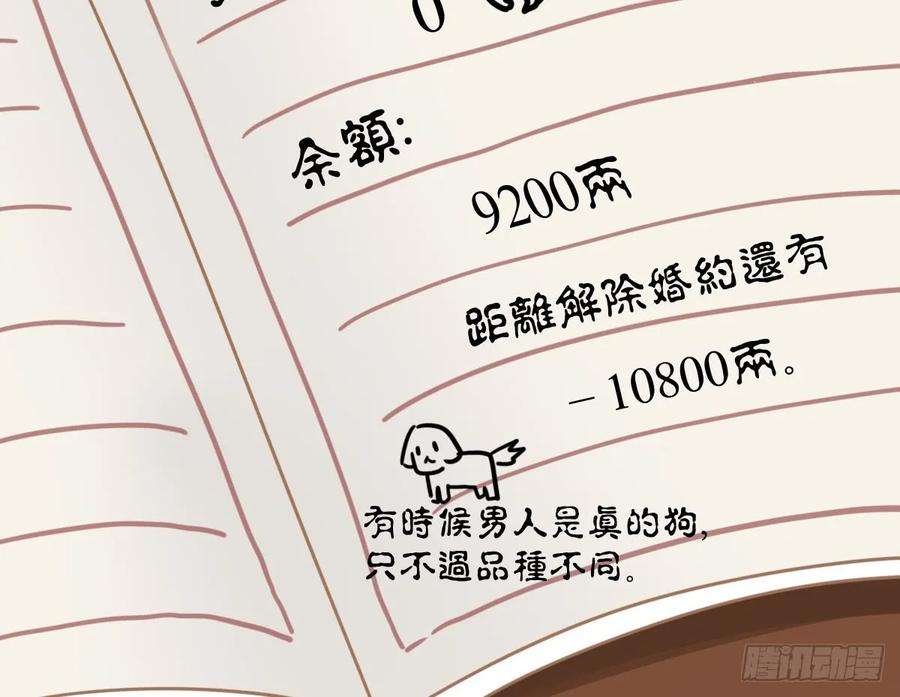 0
余額:
9200兩
距離解除婚約還有
– 10800兩。
有時候男人是真的狗,
只不過品種不同。
腾讯动漫